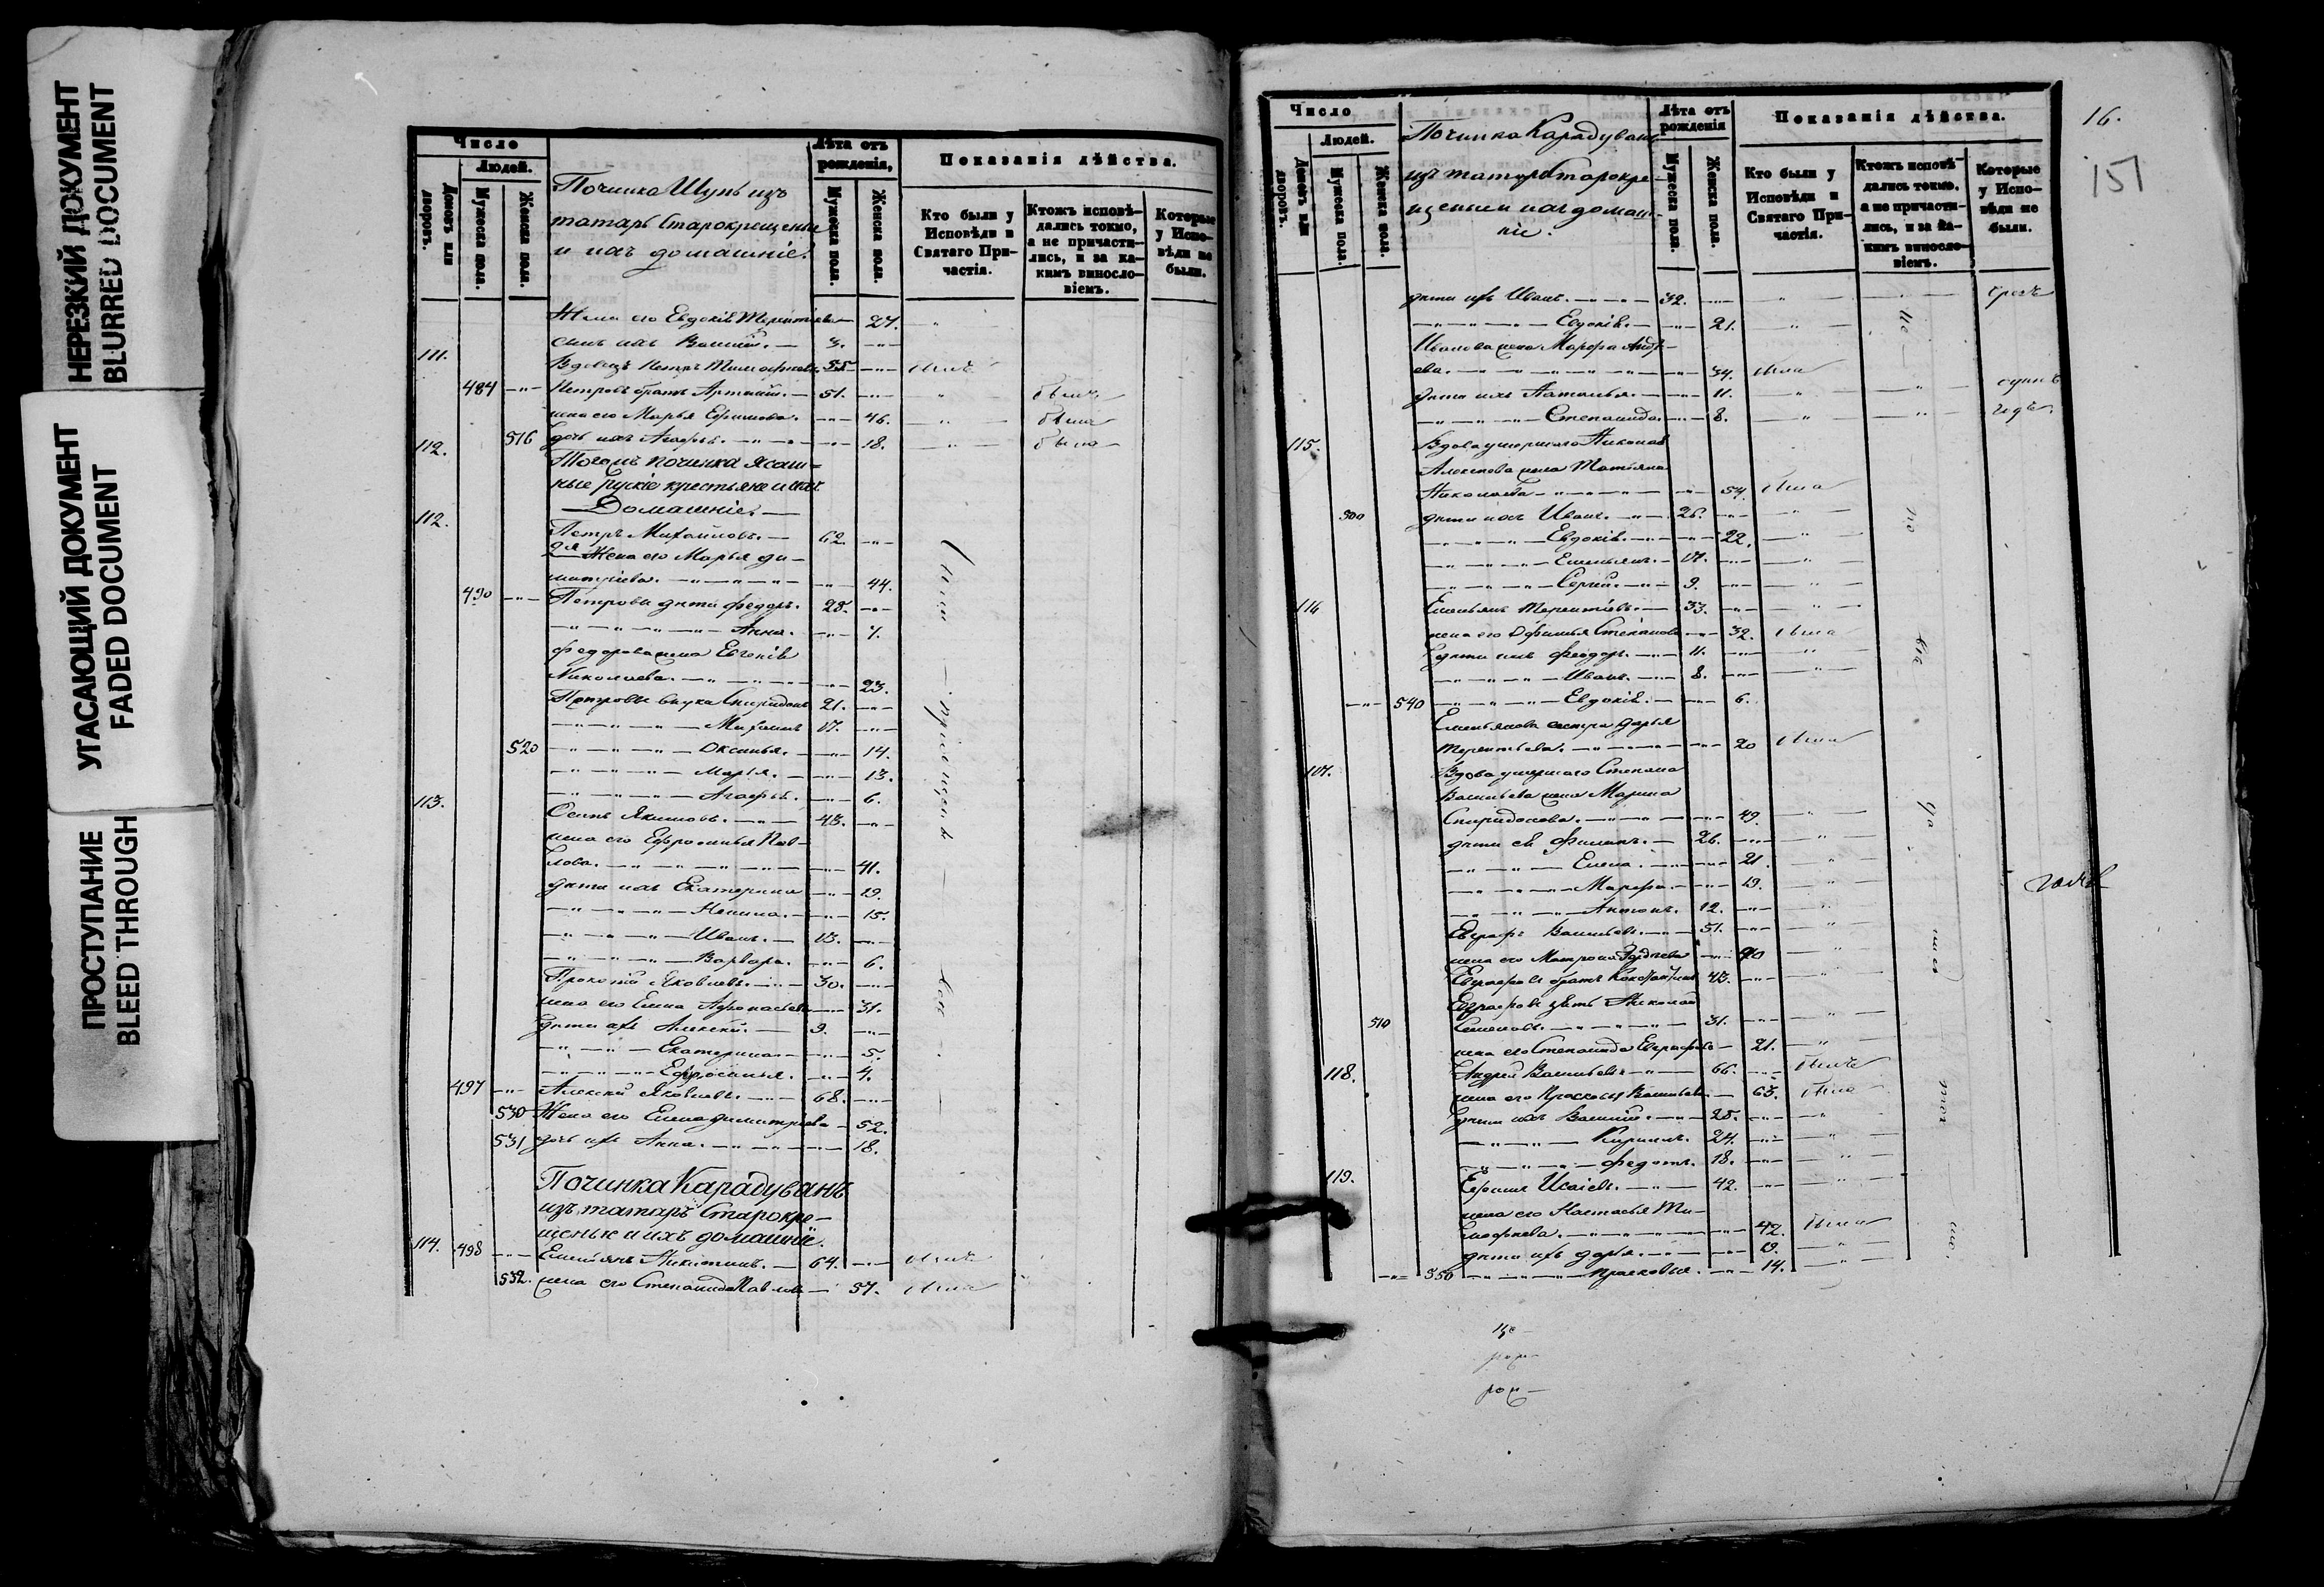 НЕРЕЗКИЙ ДОКУМЕНТ
BLURRED DOCUMENT
УГАСАЮЩИЙ ДОКУМЕНТ
FADED DOCUMENT
ПРОСТУПАНИЕ
BLEED THROUGH
Число
Людей.
Домовъ или дворовъ.
Мужеска пола.
Женска пола.
Починка Шунь изъ
татаръ Старокрещеные
и ихъ домашніе.
Лѣта отъ рожденія,
Мужеска пола.
Женска пола.
Показанія дѣйства.
Кто были у Исповѣди и Святаго Причастія.
Ктожъ исповѣдались токмо, а не причастились, и за какимъ винословіемъ.
Которые у Исповѣди не были.
Жена его Евдокія Терентіева 27.
сынъ ихъ Василій. 3.
111. Вдовецъ Петръ Тимофеевъ 55 былъ
484 Петровъ братъ Артемій. 51. былъ
жена его Марья Ефимова. 46. была
112. 516 дочь ихъ Агафья. 18. была
Тогожъ починка ясаш-
ные рускіе крестьяне и ихъ
Домашніе.
112. Петръ Михайловъ. 62.
2я Жена его Марья Ди-
митріева. 44.
490 Петровы дѣти Федоръ. 28.
Анна. 7.
Федорова жена Евгенія
Николаева. 23.
Петровы внука Спиридонъ 21.
Михаилъ 17.
520 Оксинья. 14.
Марья. 13.
Агафья. 6.
113. Осипъ Якимовъ. 43.
жена его Ефросинья Пав-
лова. 41.
дѣти ихъ Екатерина 19.
15.
Иванъ. 13.
Варвара. 6.
Прокопій Яковлевъ. 30.
жена его Елена Афонасьева 31.
дѣти ихъ Алексѣй. 9.
Екатерина 5.
Ефросинья. 4.
497 Алексѣй Яковлевъ. 68.
530 Жена его Елена Димитріева 52.
531 дочь ихъ Анна. 18.
Починка Карадуванъ
изъ татаръ Старокре-
щеные и ихъ домашніе.
114. 498 Емельянъ Никитинъ. 64. былъ
532. жена его Степанида Павлова 57. была
16.
151
Число
Людей.
Домовъ или дворовъ.
Мужеска пола.
Женска пола.
Починка Карадуванъ
изъ татаръ Старокре-
щеные и ихъ домаш-
ніе.
Лѣта отъ рожденія
Мужеска пола.
Женска пола.
Показанія дѣйства.
Кто были у Исповѣди и Святаго Причастія.
Ктожъ исповѣдались токмо, а не причастились, и за какимъ винословіемъ.
Которые у Исповѣди не были.
дѣти ихъ Иванъ. 32.
Евдокія. 21.
Иванова жена Марфа Андре-
ева. 34. была
дѣти ихъ Наталья. 11.
Степанида. 8.
115. Вдова умершаго Николая
Алексѣева жена Татьяна
Николаева 54. была
500 дѣти ихъ Иванъ. 26.
Евдокія. 22.
Емельянъ. 17.
Сергѣй. 9.
116 Емельянъ Терентіевъ. 33.
жена его Офимья Степанова 32. была
дѣти ихъ Феодоръ. 11.
Иванъ. 8.
540 Евдокія. 6.
Емельянова сестра Дарья
Терентьева. 20 была
117. Вдова умершаго Степана
Васильева жена Марина
Спиридонова. 49.
дѣти ея Филипъ. 26.
Елена. 21.
Марфа. 19.
Антонъ. 12.
Евграфъ Васильевъ. 51.
жена его Матрона 40
Евграфовъ братъ Константинъ 43.
Евграфовъ зять Николай
510 Семеновъ. 31.
жена его Степанида Евграфова 21.
118. Андрей Васильевъ 66. былъ
жена его Прасковья Васильева 63. была
дѣти ихъ Василій. 28.
Кирилъ. 24.
Федотъ. 18.
119. Ефимъ Исаіевъ. 42.
жена его Настасья Ти-
мофеева. 42. была
дѣти ихъ Дарья. 19.
550 Прасковья. 14.